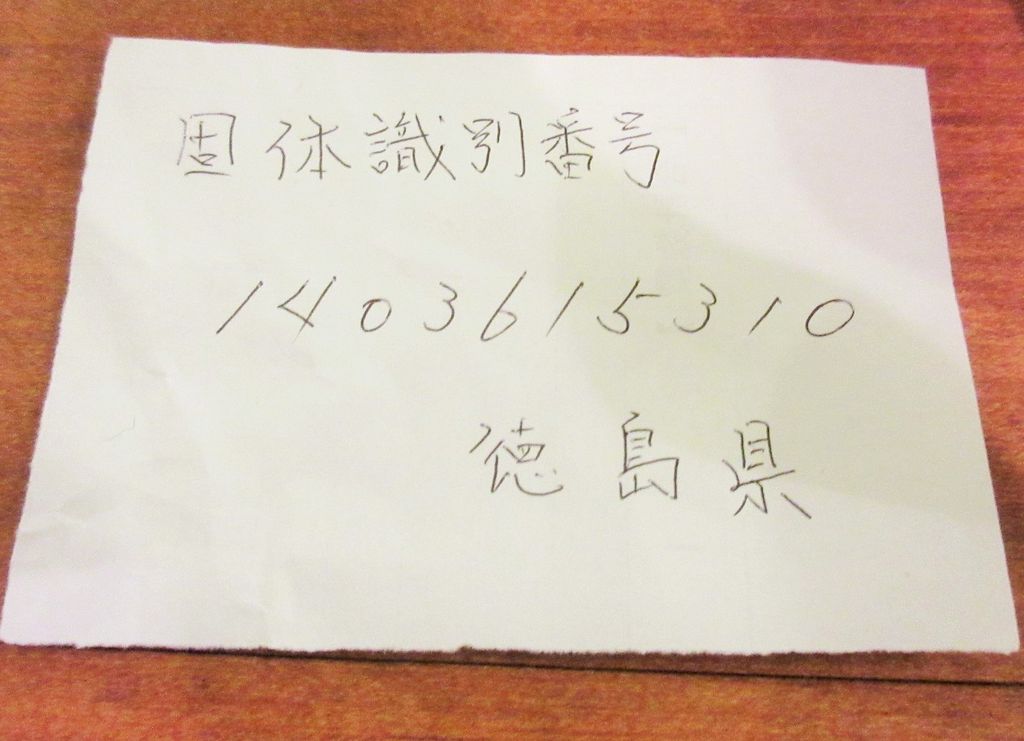 固体識別番号
1403615310
徳島県